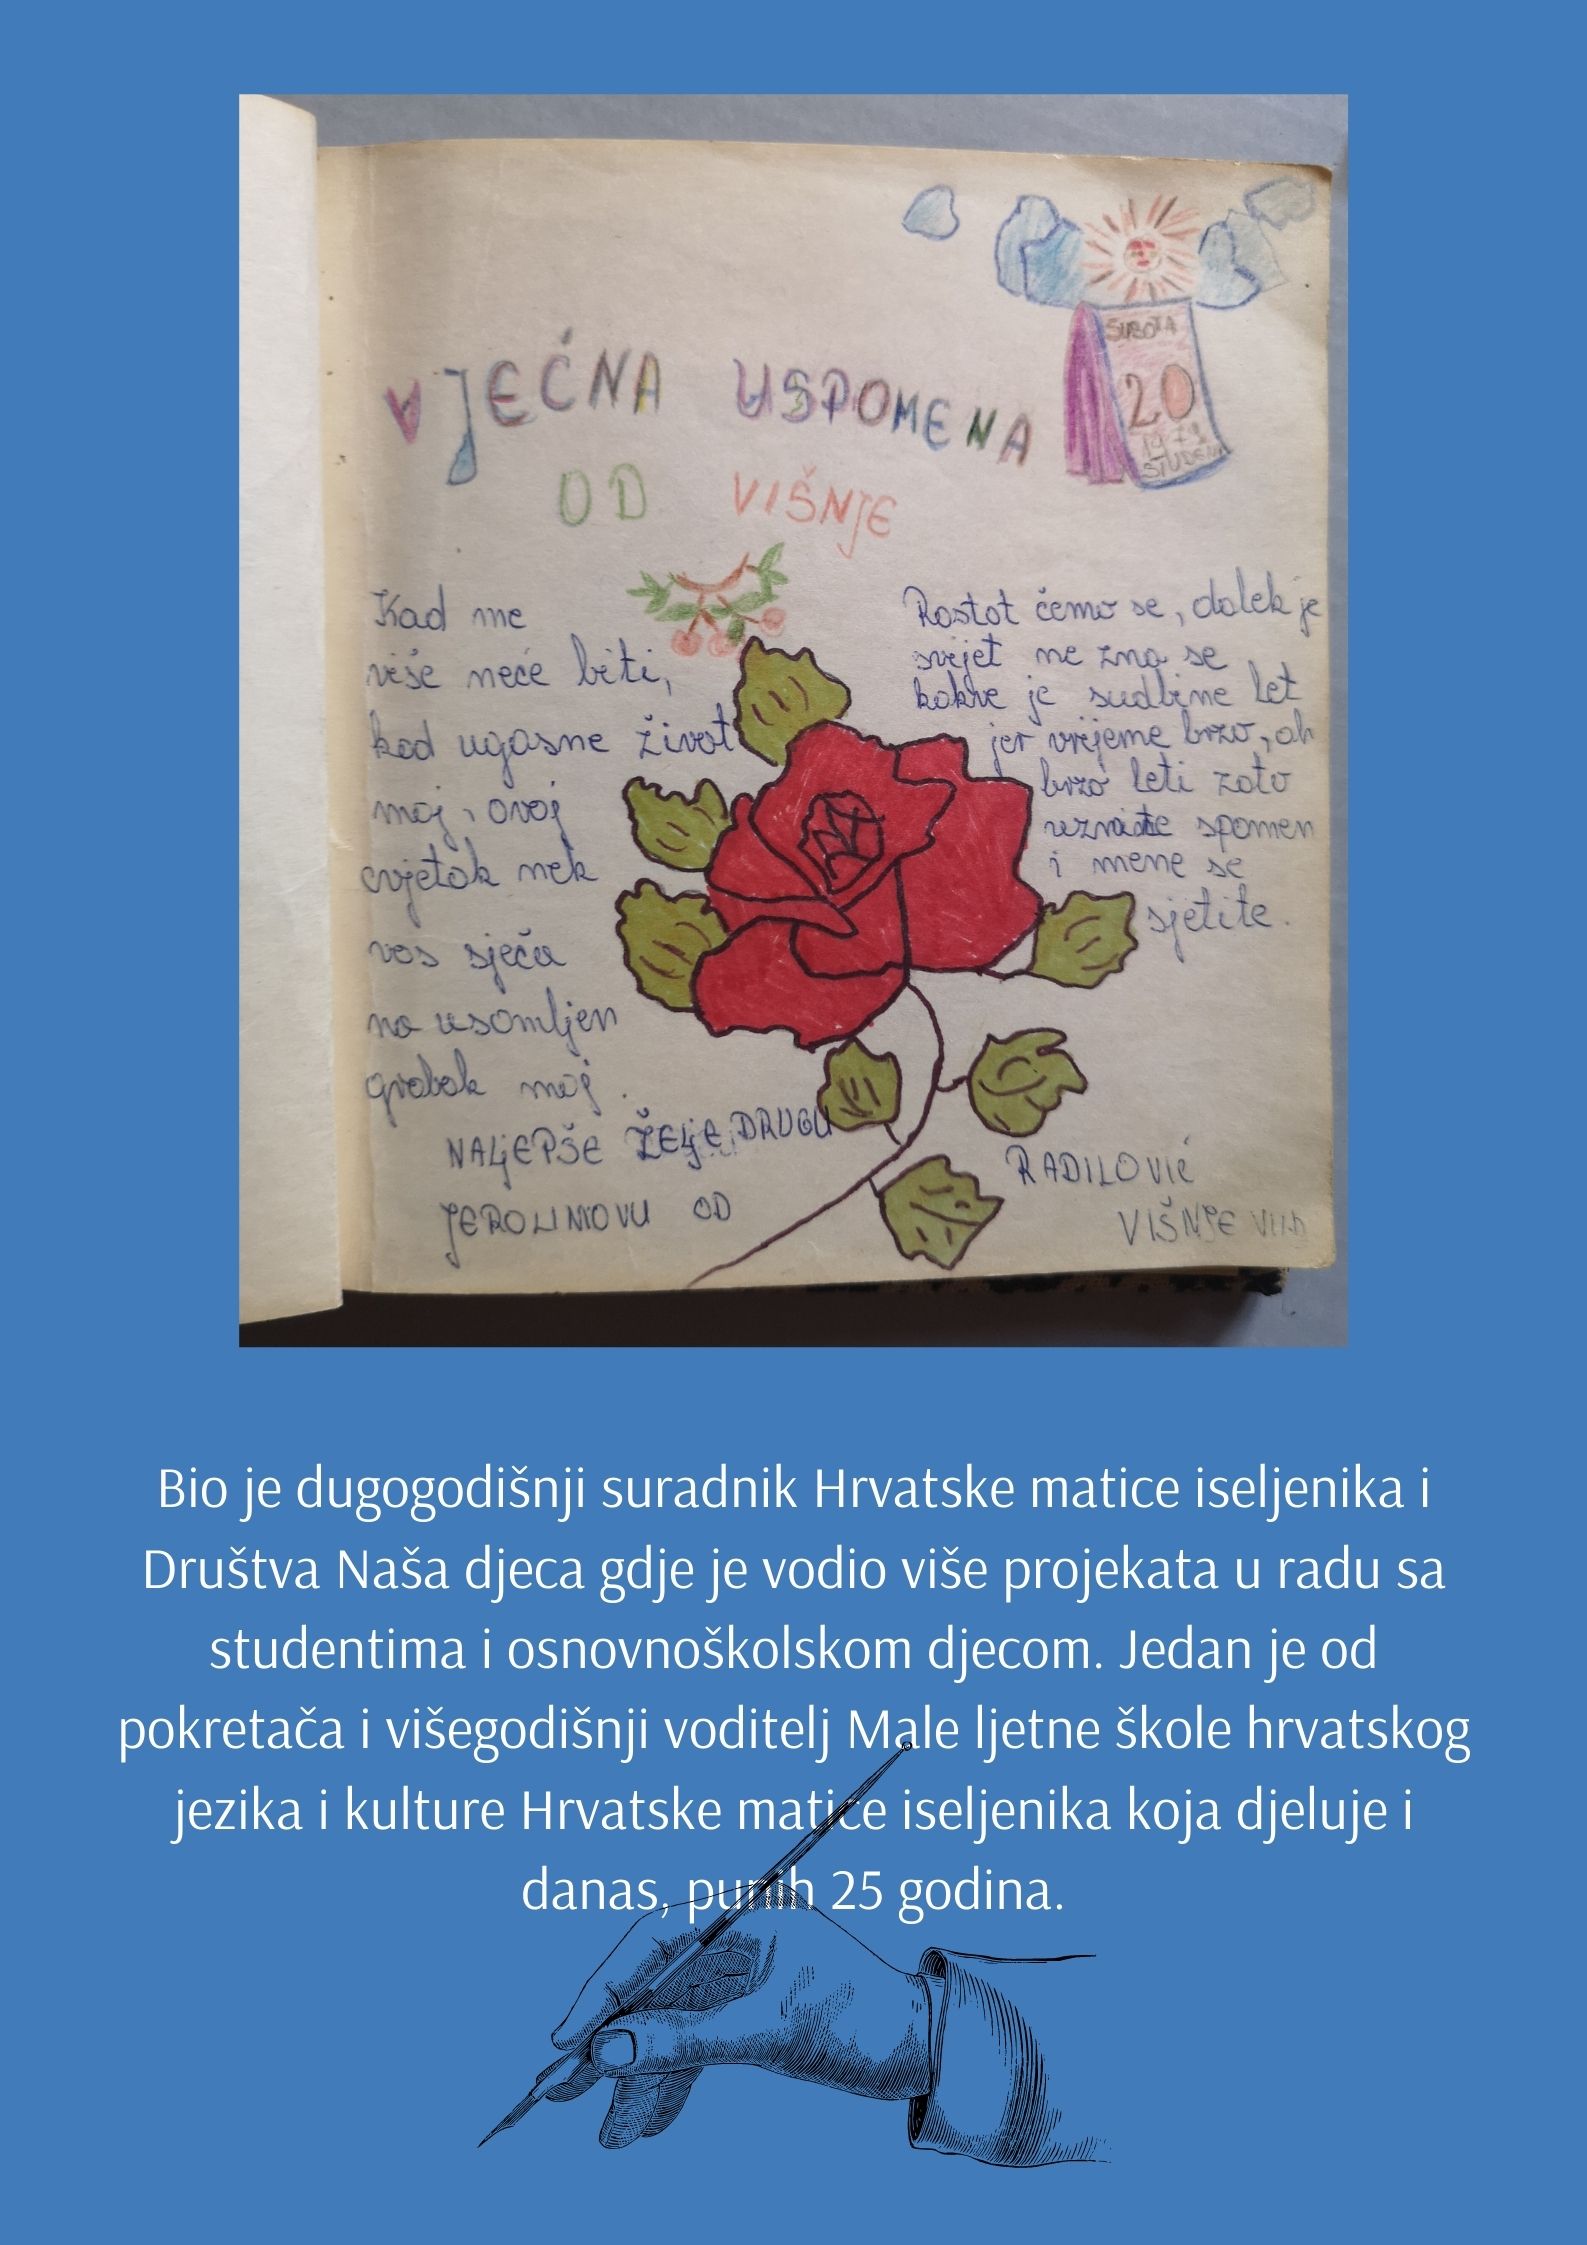 SUBOTA
20
1979
STUDENI
VJEĆNA USPOMENA
OD VIŠNJE
Kad me
više neće biti,
kad ugasne život
moj, ovaj
cvjetak nek
vas sjeća
na usamljen
grobak moj.
Rastat ćemo se, dalek je
svijet ne zna se
kakve je sudbine let
jer vrijeme brzo, ah
brzo leti zato
uzmite spomen
i mene se
sjetite.
NALJEPŠE ŽELJE DRUGU
JEROLIMOVU OD
RADILOVIĆ
VIŠNJE VII.D
Bio je dugogodišnji suradnik Hrvatske matice iseljenika i
Društva Naša djeca gdje je vodio više projekata u radu sa
studentima i osnovnoškolskom djecom. Jedan je od
pokretača i višegodišnji voditelj Male ljetne škole hrvatskog
jezika i kulture Hrvatske matice iseljenika koja djeluje i
danas, punih 25 godina.